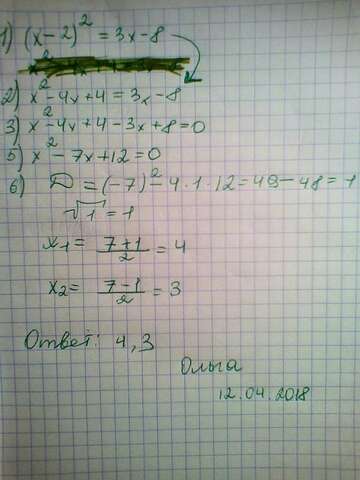 1) (x-2)² = 3x-8
2) x²-4x+4=3x-8
3) x²-4x+4-3x+8=0
5) x²-7x+12=0
6) D=(-7)²-4·1·12=49-48=1
√1=1
x1= (7+1)/2 =4
x2= (7-1)/2 =3
Ответ: 4,3
Ольга
12.04.2018